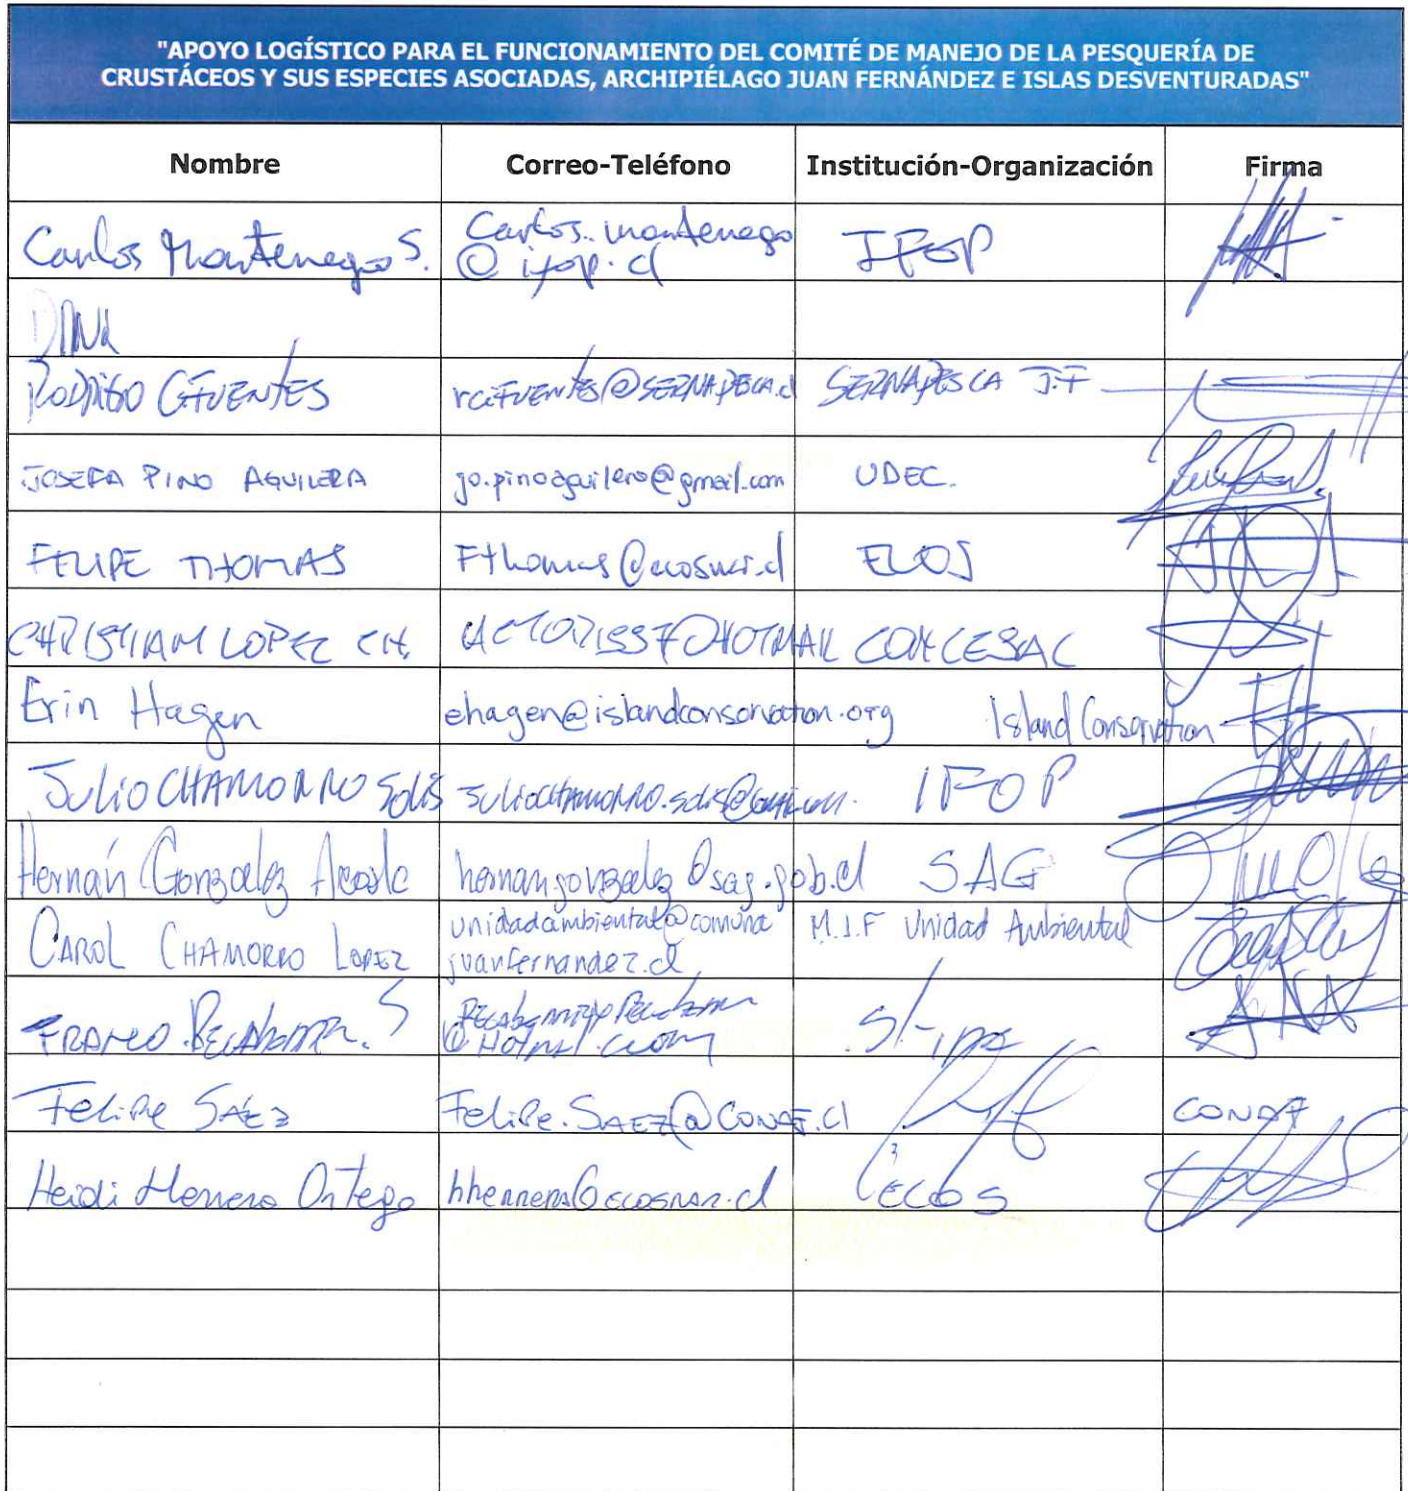 "APOYO LOGÍSTICO PARA EL FUNCIONAMIENTO DEL COMITÉ DE MANEJO DE LA PESQUERÍA DE
CRUSTÁCEOS Y SUS ESPECIES ASOCIADAS, ARCHIPIÉLAGO JUAN FERNÁNDEZ E ISLAS DESVENTURADAS"
Nombre Correo-Teléfono Institución-Organización Firma
Carlos Montenegro S. Carlos.montenego IFOP
@ifop.cl
RODRIGO CIFUENTES rcifuentes@SERNAPESCA.cl SERNAPESCA J.F
JOSEFA PINO AGUILERA jo.pinoaguilera@gmail.com UDEC.
FELIPE THOMAS Fthomas@ecosmar.cl ECOS
CHRISTIAM LOPEZ CH. HOTMAIL COM
Erin Hagen ehagen@islandconservation.org Island Conservation
Julio CHAMORRO Solis Juliochamorro.solis@gmail.com. IFOP
Hernán González Acosta hernan.gonzalez@sag.gob.cl SAG
CAROL CHAMORRO LOPEZ unidadambiental@comuna M.J.F Unidad Ambiental
juanfernandez.cl
FRANCO RECABARREN. S
@Hotmail.com
Felipe SAEZ Felipe.SAEZ@CONAF.cl CONAF
Heidi Herrera Ortega hherrera@ecosmar.cl ecos